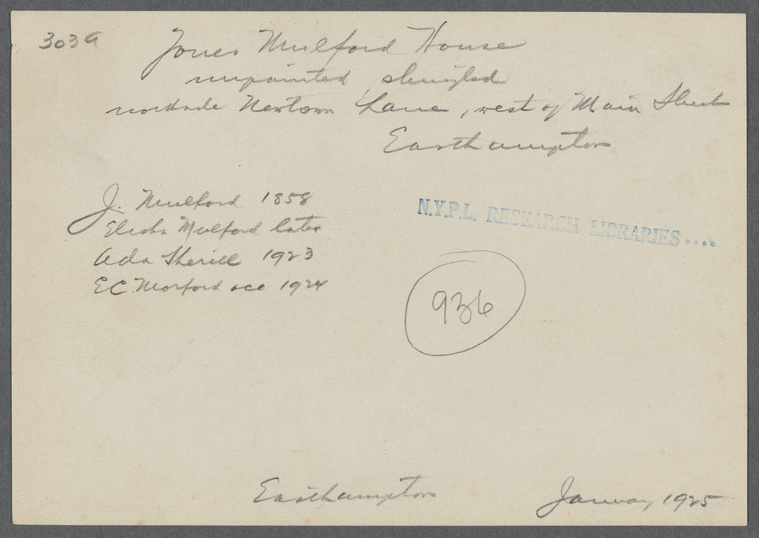 303a
Jones Mulford House
unpainted, shingled
northside Newtown Lane, west of Main Street
Easthampton
J. Mulford 1858
Elisha Mulford later
Ada Sherill 1923
E C Morford occ 1924
N.Y.P.L. RESEARCH LIBRARIES....
936
Easthampton
January 1925